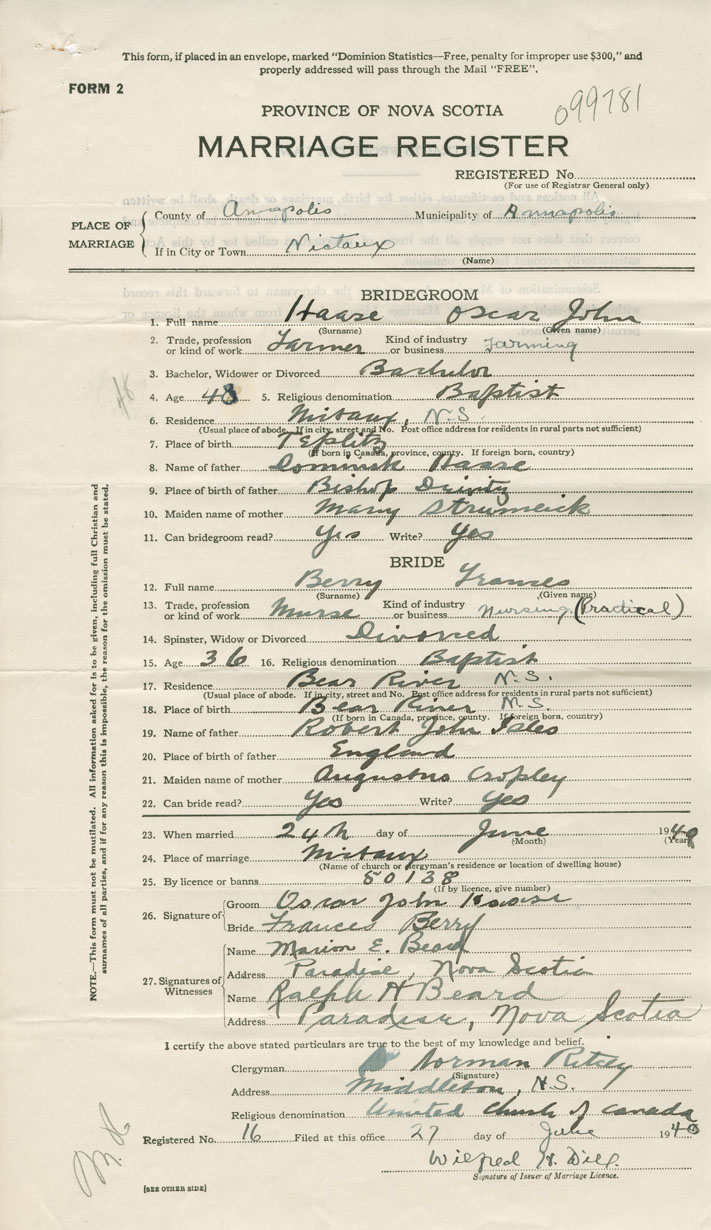 This form, if placed in an envelope, marked "Dominion Statistics—Free, penalty for improper use $300," and
properly addressed will pass through the Mail "FREE".
FORM 2
099781
PROVINCE OF NOVA SCOTIA
MARRIAGE REGISTER
REGISTERED No.
(For use of Registrar General only)
PLACE OF MARRIAGE
County of Annapolis Municipality of Annapolis
If in City or Town Nictaux
(Name)
BRIDEGROOM
1. Full name Haase Oscar John
(Surname) (Given name)
2. Trade, profession or kind of work Farmer Kind of industry or business Farming
3. Bachelor, Widower or Divorced Bachelor
48
4. Age 48 5. Religious denomination Baptist
6. Residence Nictaux, N.S.
(Usual place of abode. If in city, street and No. Post office address for residents in rural parts not sufficient)
7. Place of birth Teplitz
(If born in Canada, province, county. If foreign born, country)
8. Name of father Dominick Haase
9. Place of birth of father Bishop
10. Maiden name of mother Mary
11. Can bridegroom read? Yes Write? Yes
BRIDE
12. Full name Berry Frances
(Surname) (Given name)
13. Trade, profession or kind of work Nurse Kind of industry or business Nursing (Practical)
14. Spinster, Widow or Divorced Divorced
15. Age 36 16. Religious denomination Baptist
17. Residence Bear River N.S.
(Usual place of abode. If in city, street and No. Post office address for residents in rural parts not sufficient)
18. Place of birth Bear River N.S.
(If born in Canada, province, county. If foreign born, country)
19. Name of father Robert John
20. Place of birth of father England
21. Maiden name of mother Augustus Cropley
22. Can bride read? Yes Write? Yes
23. When married 24th day of June 1940
(Month) (Year)
24. Place of marriage Nictaux
(Name of church or clergyman's residence or location of dwelling house)
25. By licence or banns 50138
(If by licence, give number)
26. Signature of
Groom Oscar John Haase
Bride Frances Berry
27. Signatures of Witnesses
Name Marion E. Beard
Address Paradise, Nova Scotia
Name Ralph H Beard
Address Paradise, Nova Scotia
I certify the above stated particulars are true to the best of my knowledge and belief.
Clergyman Norman
(Signature)
Address Middleton, N.S.
Religious denomination United Church of Canada
Registered No. 16 Filed at this office 27 day of 1940
Wilfred H.
Signature of Issuer of Marriage Licence.
[SEE OTHER SIDE]
NOTE.—This form must not be mutilated. All information asked for is to be given, including full Christian and
surnames of all parties, and if for any reason this is impossible, the reason for the omission must be stated.